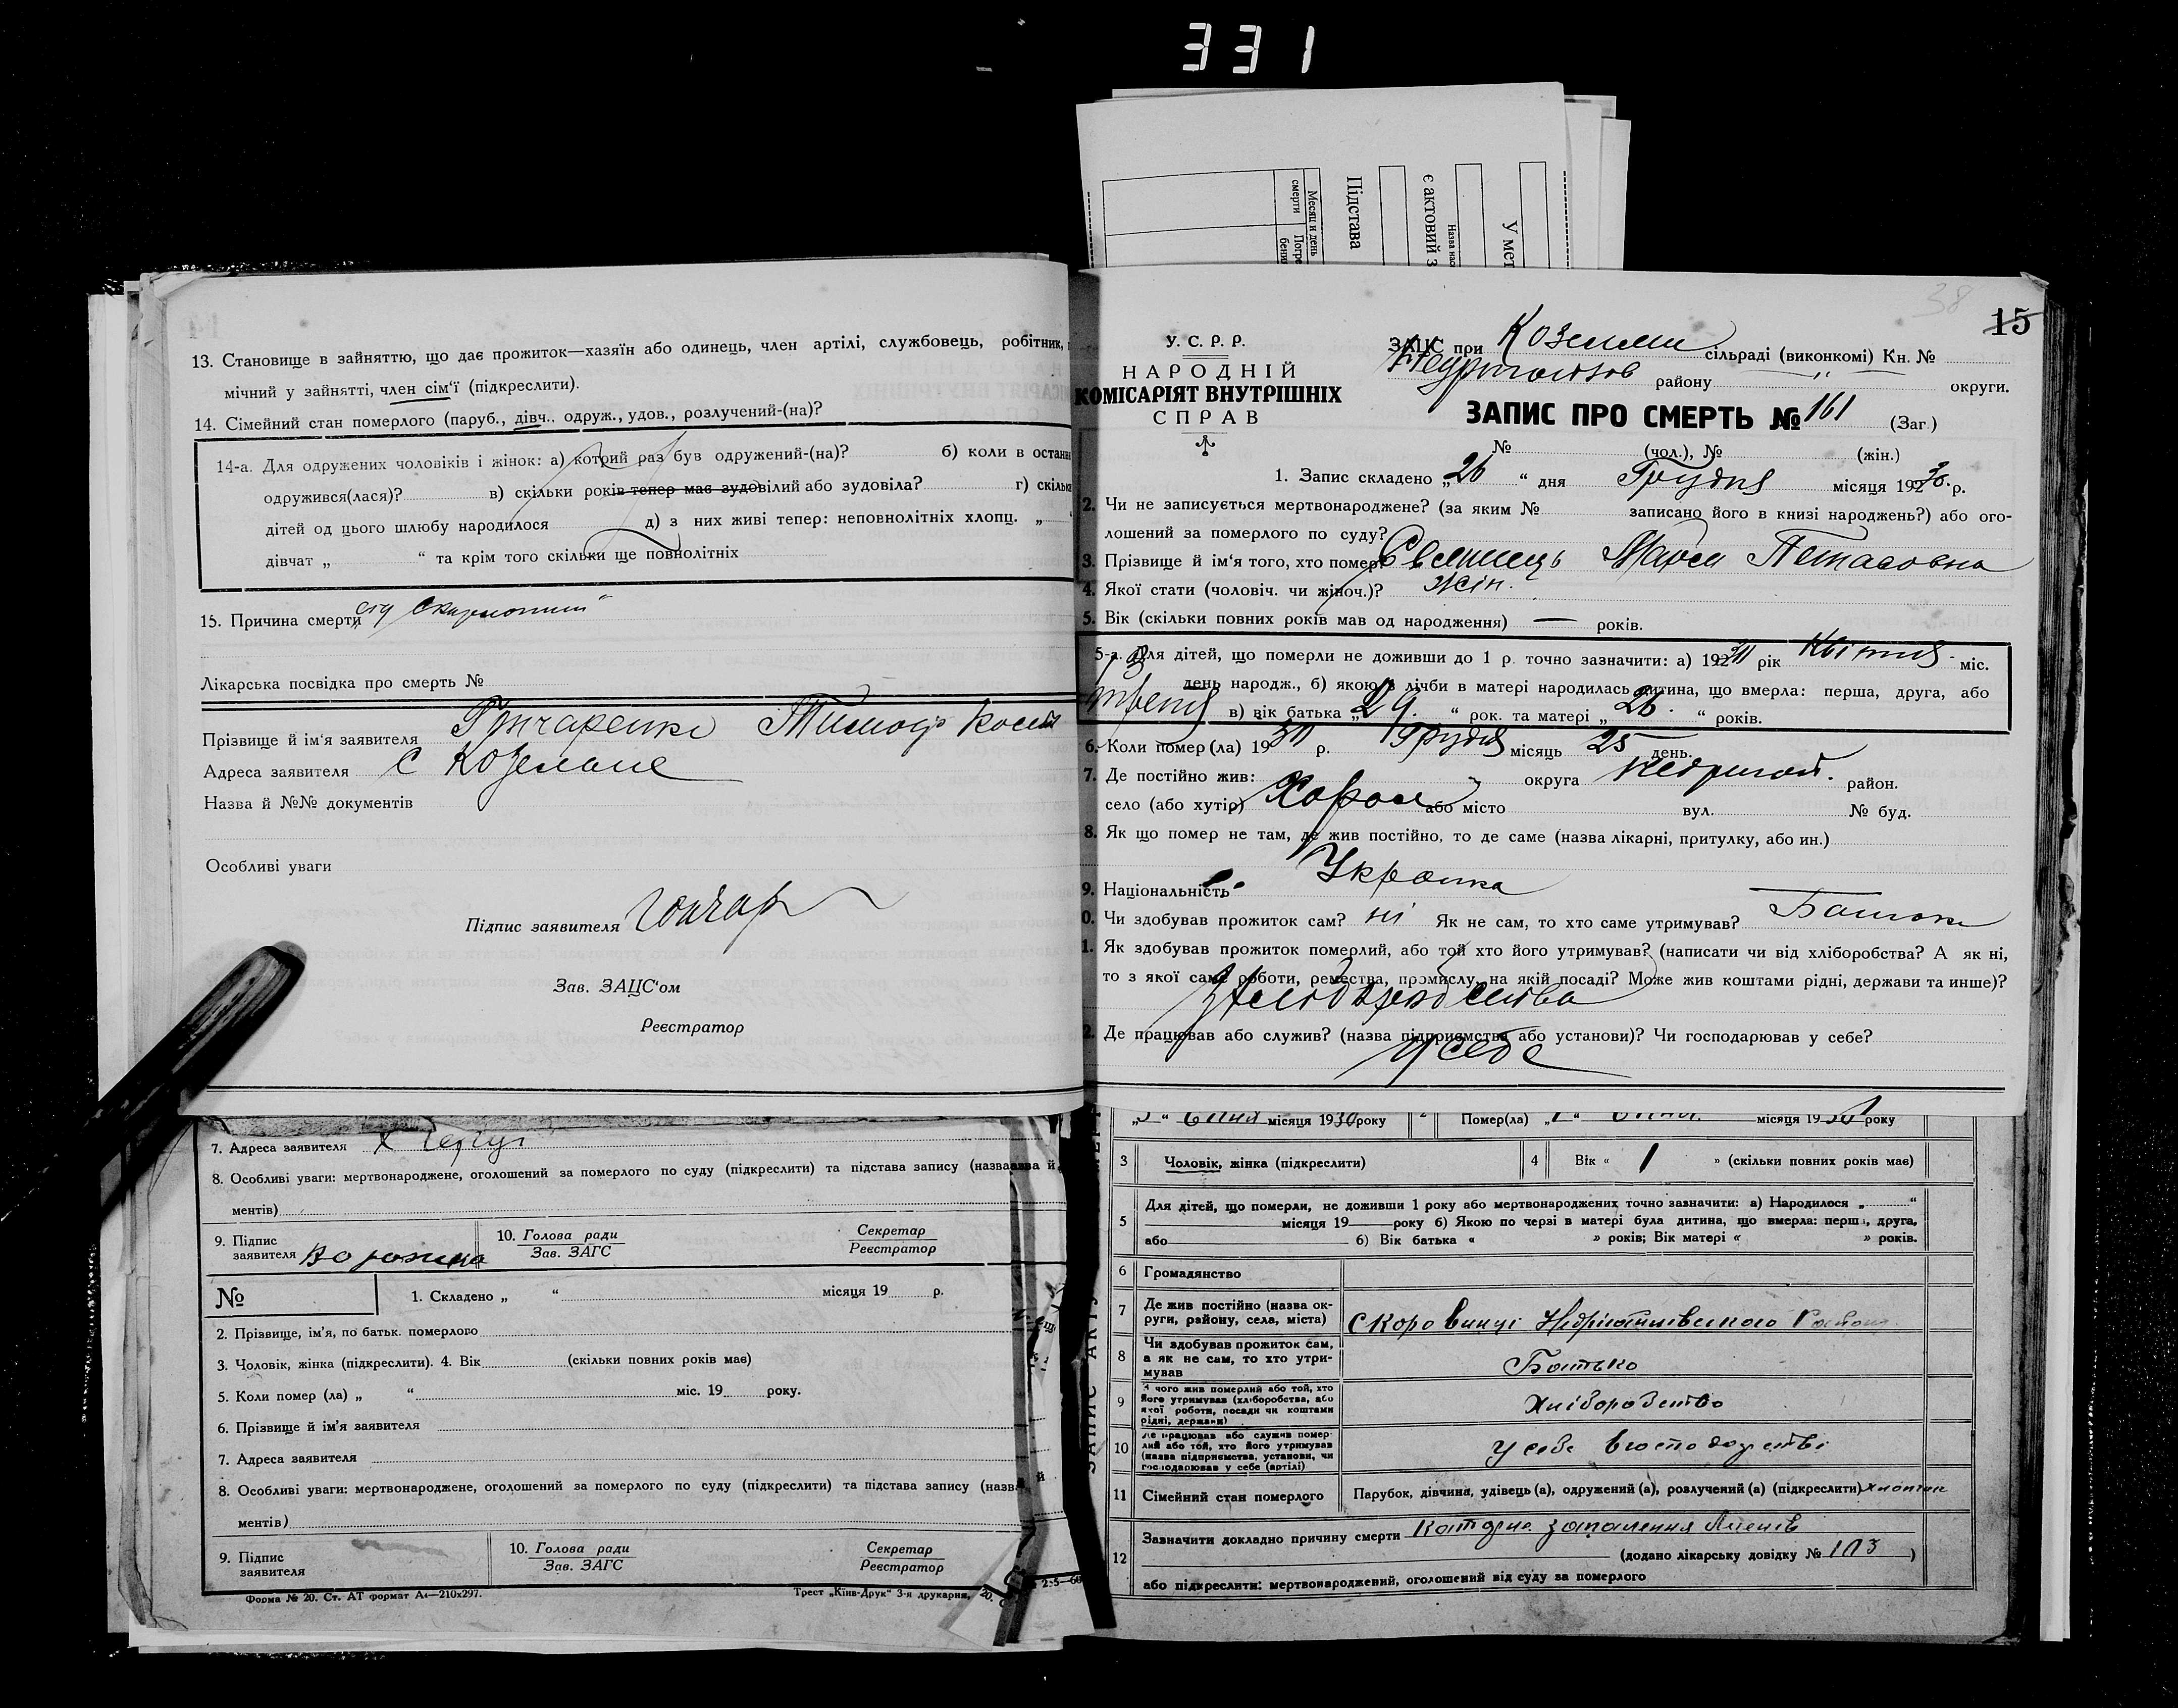 331
Месяц и день смерти
Підстава
є актовий з
У мет
13. Становище в зайняттю, що дає прожиток—хазяїн або одинець, член артілі, службовець, робітник,
мічний у зайнятті, член сім'ї (підкреслити).
14. Сімейний стан померлого (паруб., дівч., одруж., удов., розлучений-(на)?
14-а. Для одружених чоловіків і жінок: а) котрий раз був одружений-(на)? б) коли в останн
одружився(лася)? в) скільки років тепер має зудовілий або зудовіла? г) скільк
дітей од цього шлюбу народилося д) з них живі тепер: неповнолітніх хлопц. „
дівчат „ “ та крім того скільки ще повнолітніх
15. Причина смерти
Лікарська посвідка про смерть №
Прізвище й ім'я заявителя Гончаренко Тимофр
Адреса заявителя с Козельне
Назва й №№ документів
Особливі уваги
Підпис заявителя Гончар
Зав. ЗАЦС'ом
Реєстратор
7. Адреса заявителя х
8. Особливі уваги: мертвонароджене, оголошений за померлого по суду (підкреслити) та підстава запису (назва й
ментів)
9. Підпис заявителя 10. Голова ради Зав. ЗАГС Секретар Реєстратор
№ 1. Складено „ “ місяця 19 р.
2. Прізвище, ім'я, по батьк. померлого
3. Чоловік, жінка (підкреслити). 4. Вік (скільки повних років має)
5. Коли помер (ла) „ “ міс. 19 року.
6. Прізвище й ім'я заявителя
7. Адреса заявителя
8. Особливі уваги: мертвонароджене, оголошений за померлого по суду (підкреслити) та підстава запису (назв й
ментів)
9. Підпис заявителя 10. Голова ради Зав. ЗАГС Секретар Реєстратор
Форма № 20. Ст. АТ формат А4—210х297. Трест „Київ-Друк“ 3-я друкарня.
38
15
У. С. Р. Р.
НАРОДНІЙ
КОМІСАРІЯТ ВНУТРІШНІХ
СПРАВ
ЗАЦС при сільраді (виконкомі) Кн. №
району „ округи.
ЗАПИС ПРО СМЕРТЬ № 161 (Заг.)
№ (чол.), № (жін.)
1. Запис складено „26“ дня Грудня місяця 1930 р.
2. Чи не записується мертвонароджене? (за яким № записано його в книзі народжень?) або ого-
лошений за померлого по суду?
3. Прізвище й ім'я того, хто помер
4. Якої стати (чоловіч. чи жіноч.)? жін.
5. Вік (скільки повних років мав од народження) — років.
5-а. Для дітей, що померли не доживши до 1 р. точно зазначити: а) 1930 рік Квітня міс.
день народж., б) якою з лічби в матері народилась дитина, що вмерла: перша, друга, або
третя в) вік батька „29.“ рок. та матері „26.“ років.
6. Коли помер (ла) 1930 р. Грудня місяць 25 день.
7. Де постійно жив: „ округа район.
село (або хутір) або місто вул. № буд.
8. Як що помер не там, де жив постійно, то де саме (назва лікарні, притулку, або ин.)
9. Національність Українка
0. Чи здобував прожиток сам? ні Як не сам, то хто саме утримував? Батько
1. Як здобував прожиток померлий, або той хто його утримував? (написати чи від хліборобства? А як ні,
то з якої саме роботи, ремества, промислу, на якій посаді? Може жив коштами рідні, держави та инше)?
з хліборобства
2. Де працював або служив? (назва підприємства або установи)? Чи господарював у себе?
у себе
місяця 1930 року Помер(ла) місяця 19 року
3 Чоловік, жінка (підкреслити) 4 Вік « 1 » (скільки повних років має)
5 Для дітей, що померли, не доживши 1 року або мертвонароджених точно зазначити: а) Народилося „ “
місяця 19 року б) Якою по черзі в матері була дитина, що вмерла: перша, друга,
або б) Вік батька « » років; Вік матері « » років.
6 Громадянство
7 Де жив постійно (назва округи, району, села, міста)
8 Чи здобував прожиток сам, а як не сам, то хто утримував Батько
9 З чого жив померлий або той, хто його утримував (хліборобства, або якої роботи, посади чи коштами рідні, держави) Хліборобство
10 Де працював або служив померлий або той, хто його утримував (назва підприємства, установи, чи господарював у себе (артілі) У себе в господарстві
11 Сімейний стан померлого Парубок, дівчина, удівець (а), одружений (а), розлучений (а) (підкреслити) хлопчик
12 Зазначити докладно причину смерти запалення
(додано лікарську довідку № 103)
або підкреслити: мертвонароджений, оголошений від суду за померлого